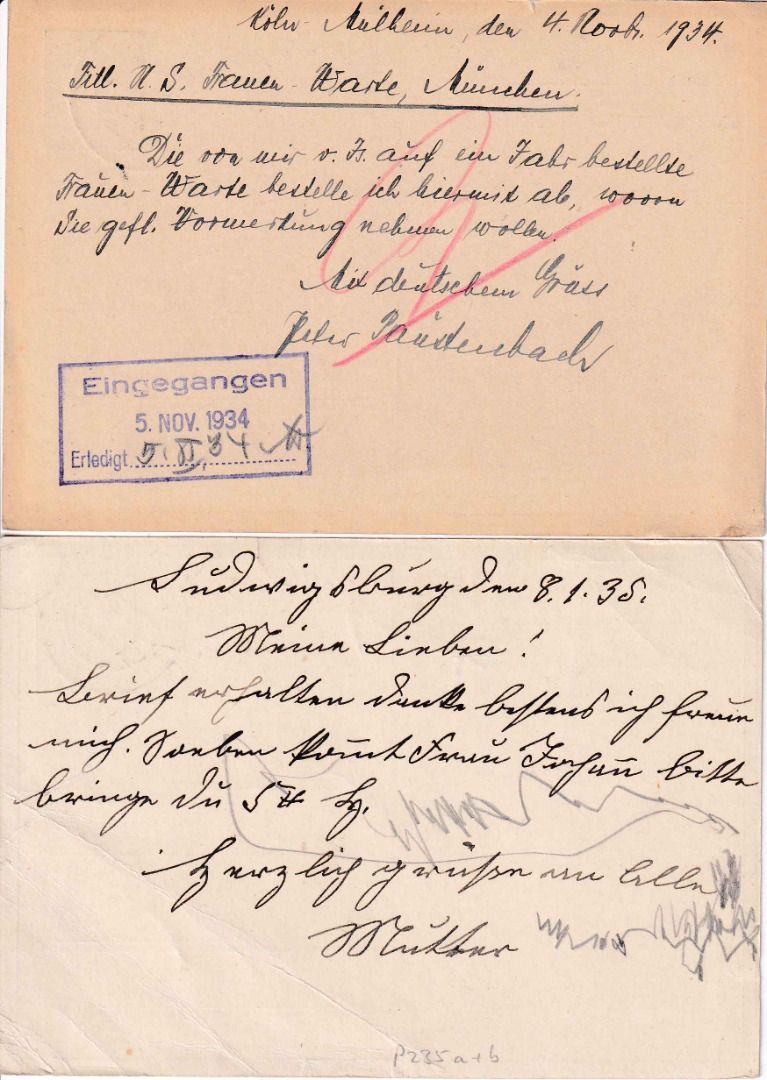 Köln-Mülheim, den 4. Novbr. 1934.
Titl. N. S. Frauen-Warte, München.
Die von mir v. Js. auf ein Jahr bestellte
Frauen-Warte bestelle ich hiermit ab, wovon
Sie gefl. Vormerkung nehmen wollen.
Mit deutschem Gruss
Peter Paustenbach
Eingegangen
5. NOV. 1934
Erledigt 5. XI. 34
Ludwigsburg den 8.1.35.
Meine Lieben!
Brief erhalten danke bestens ich freue
mich. Soeben kom̅t Frau bitte
bringe du 5 ℔
Herzlich grüße an Alle
Mutter
P235a+b